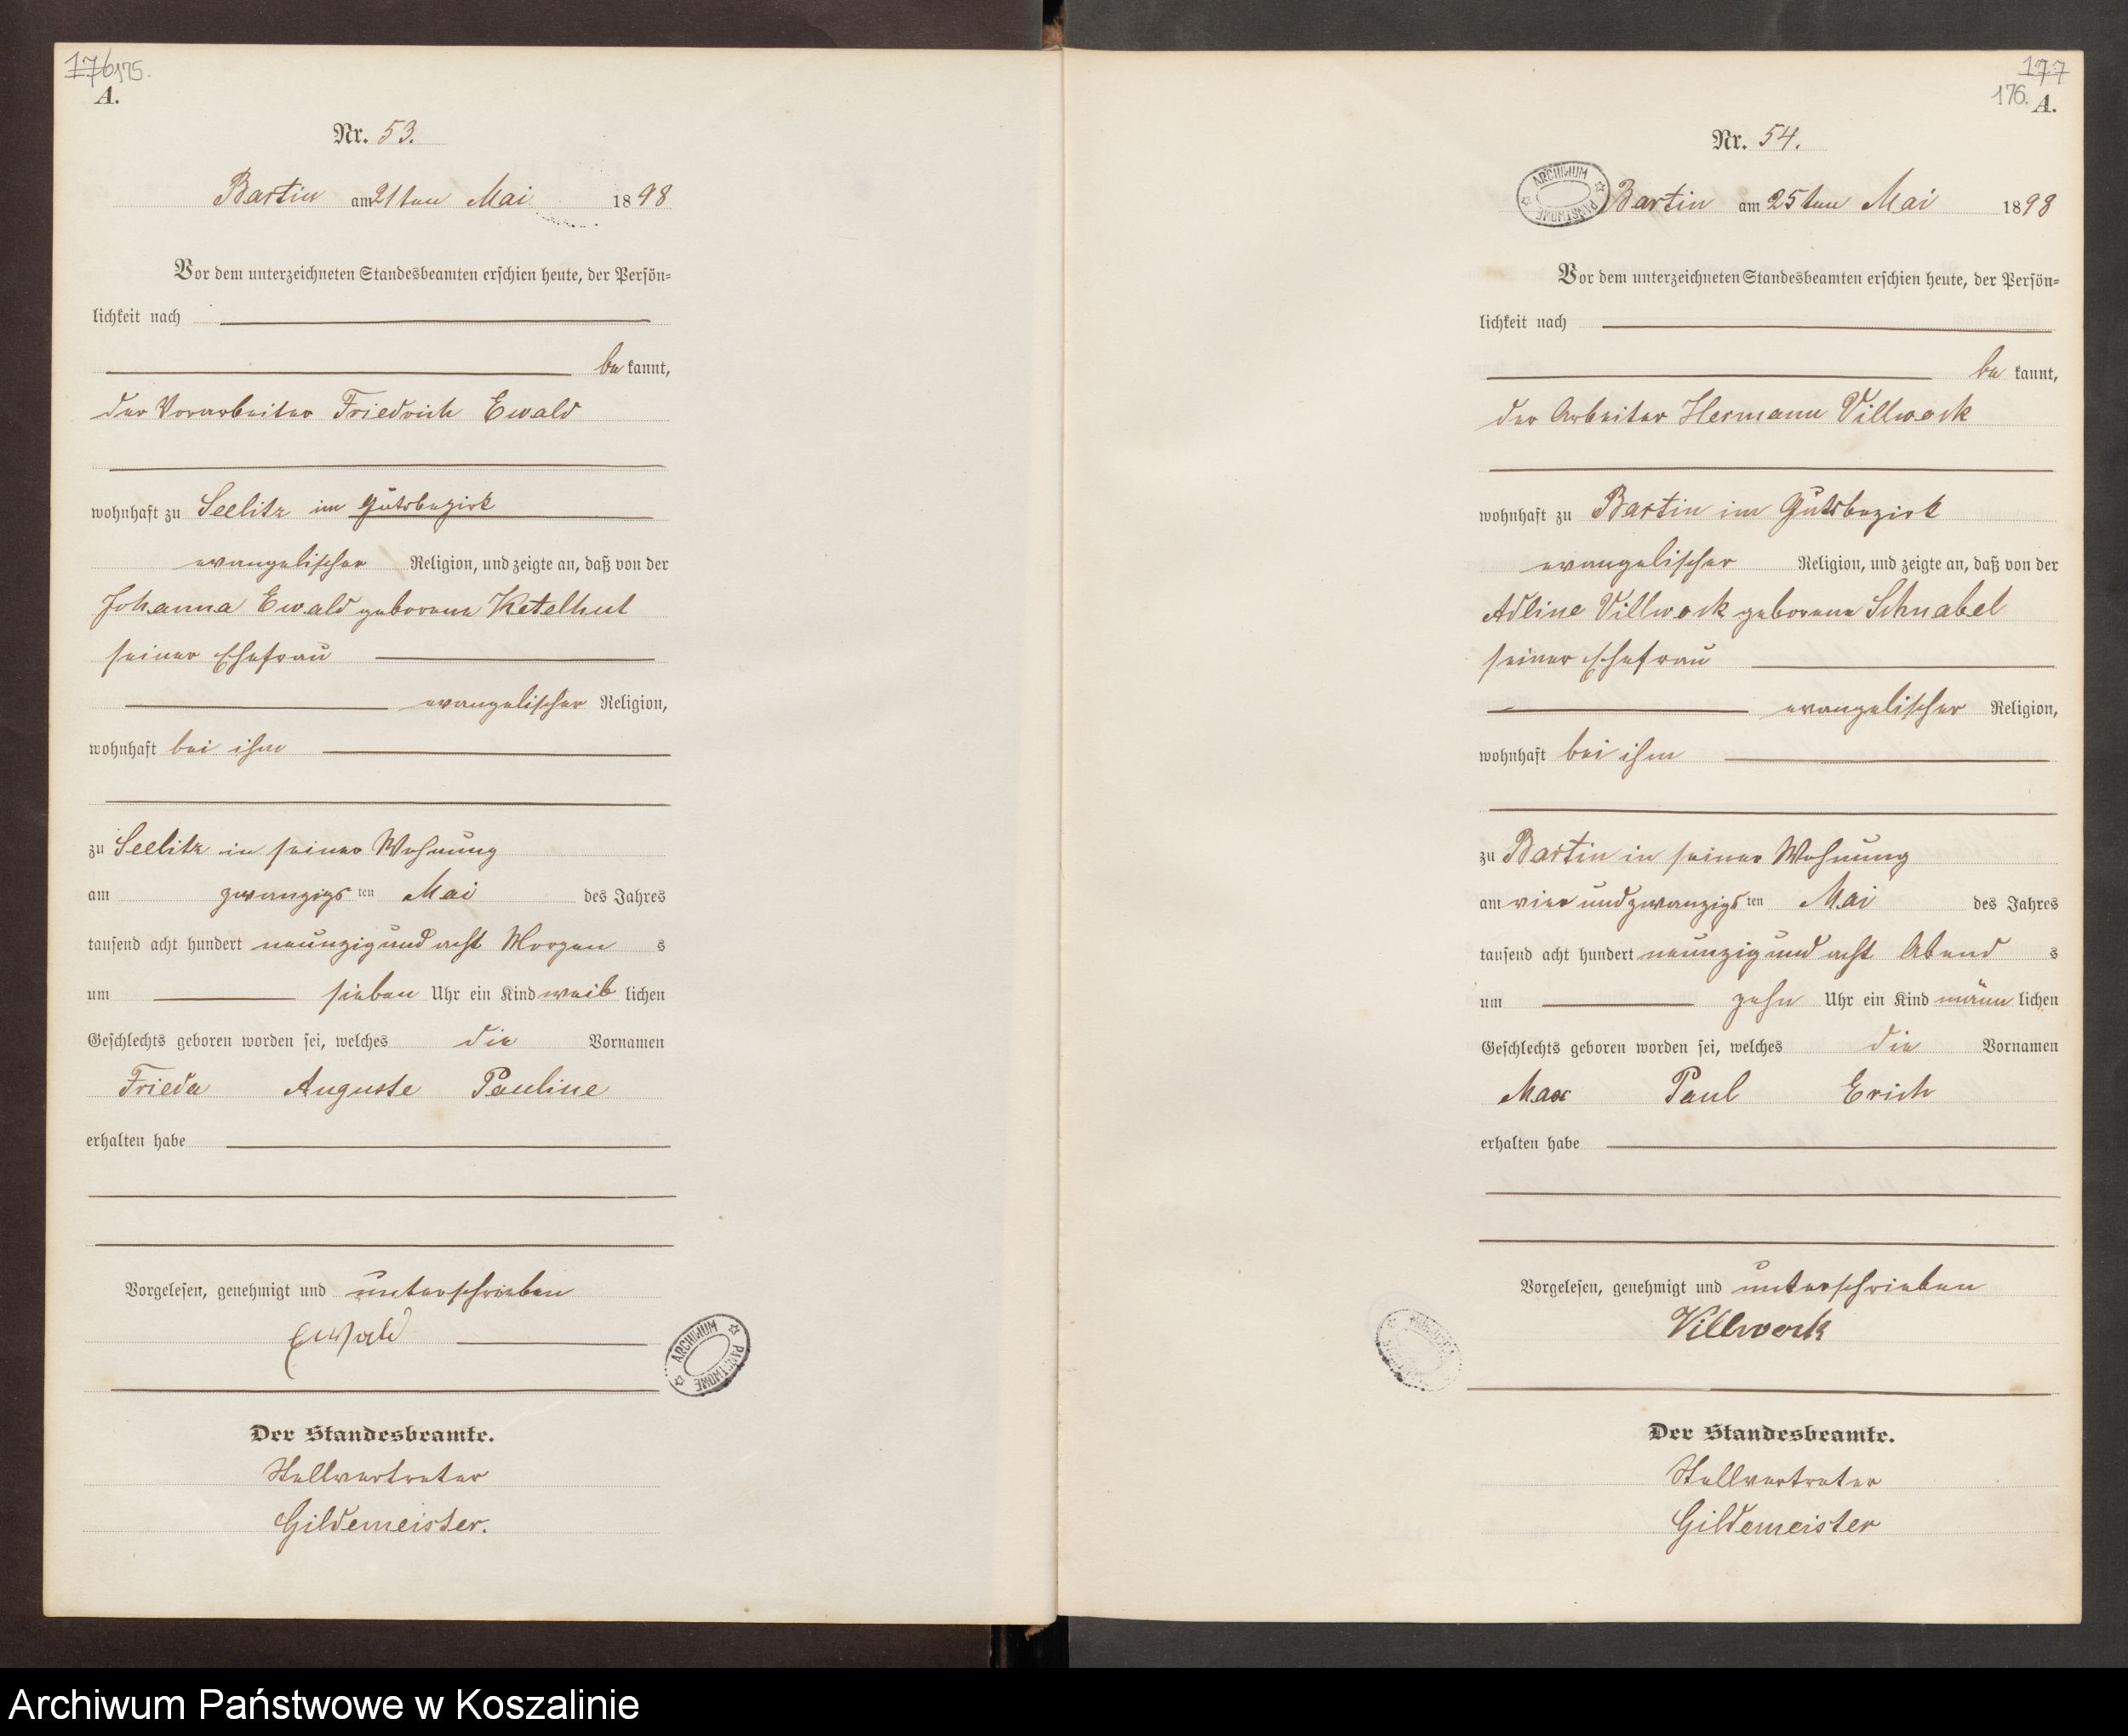 176 175.
A.
Nr. 53.
Bartin am 21ten Mai 1898
Vor dem unterzeichneten Standesbeamten erschien heute, der Persön=
lichkeit nach
be kannt,
der Vorarbeiter Friedrich Ewald
wohnhaft zu Seelitz im Gutsbezirk
evangelischer Religion, und zeigte an, daß von der
Johanna Ewald geborene Ketelhut
seiner Ehefrau
evangelischer Religion,
wohnhaft bei ihm
zu Seelitz in seiner Wohnung
am zwanzigs ten Mai des Jahres
tausend acht hundert neunzig und acht Morgen s
um sieben Uhr ein Kind weib lichen
Geschlechts geboren worden sei, welches die Vornamen
Frieda Auguste Pauline
erhalten habe
Vorgelesen, genehmigt und unterschrieben
Ewald
ARCHIWUM PAŃSTWOWE
Der Standesbeamte.
Stellvertreter
Gildemeister.
177
176. A.
Nr. 54.
ARCHIWUM PAŃSTWOWE
Bartin am 25ten Mai 1898
Vor dem unterzeichneten Standesbeamten erschien heute, der Persön=
lichkeit nach
be kannt,
der Arbeiter Hermann Villwock
wohnhaft zu Bartin im Gutsbezirk
evangelischer Religion, und zeigte an, daß von der
Adline Villwock geborene Schnabel
seiner Ehefrau
evangelischer Religion,
wohnhaft bei ihm
zu Bartin in seiner Wohnung
am vier und zwanzigs ten Mai des Jahres
tausend acht hundert neunzig und acht Abend s
um zehn Uhr ein Kind männ lichen
Geschlechts geboren worden sei, welches die Vornamen
Max Paul Erich
erhalten habe
Vorgelesen, genehmigt und unterschrieben
Villwock
Der Standesbeamte.
Stellvertreter
Gildemeister
Archiwum Państwowe w Koszalinie